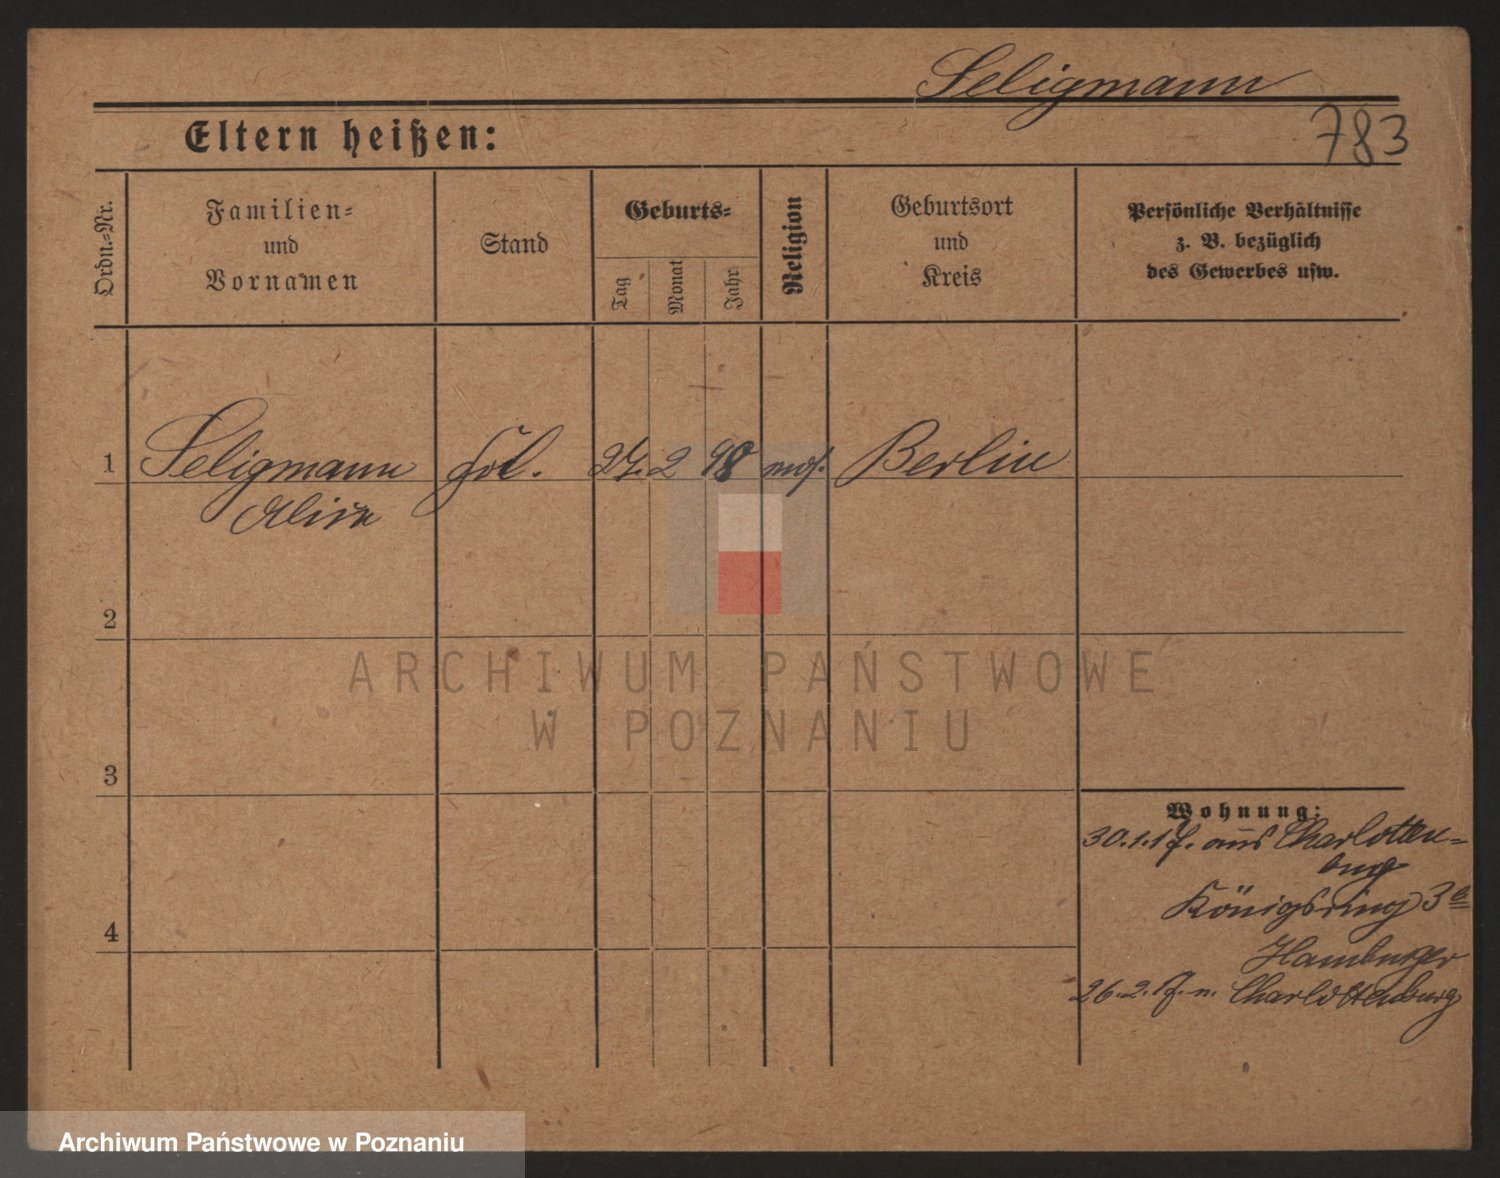 Seligmann
Eltern heißen:
783
Ordn.-Nr.
Familien-
und
Vornamen
Stand
Geburts-
Tag
Monat
Jahr
Religion
Geburtsort
und
Kreis
Persönliche Verhältnisse
z. B. bezüglich
des Gewerbes usw.
1
Seligmann
Frl.
27.
2
98
mos.
Berlin
2
ARCHIWUM PAŃSTWOWE
W POZNANIU
3
Wohnung:
30.1.17. aus Charlotten-
burg
Königsring 3a
4
Hamburger
26.2.17. n. Charlottenburg
Archiwum Państwowe w Poznaniu